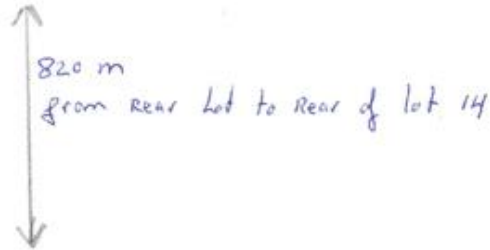 820 m
from Rear Lot to Rear of lot 14